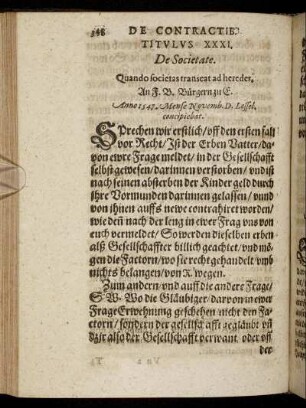 348 DE CONTRACTIB.
TITVLVS XXXI.
De Societate.
Quando societas transeat ad heredes,
An F. B. Bürgern zu E.
Anno 1547. Mense Novemb. D. Lessel.
concipiebat.
SPrechen wir erstlich/ off den ersten fall
vor Recht/ Ist der Erben Vatter/ da
von ewre Frage meldet/ in der Gesellschafft
selbst gewesen/ darinnen verstorben/ vnd ist
nach seinen absterben der Kinder geld durch
ihre Vormunden darinnen gelassen/ vnnd
von ihnen auffs newe contrahiret worden/
wie deñ nach der leng in ewer Frag vns von
euch vermeldet/ So werden dieselben erben
alß Gesellschaffter billich geachtet/ vnd mö-
gen die Factorn/ wo sie recht gehandelt vmb
nichts belangen/ von R. wegen.
Zum andern/ vnd auff die andere Frage/
S. W. Wo die Gläubiger/ darvon in ewer
Frage Erwehnung geschehen nicht den Fa-
ctorn/ sondern der gesellschafft geglaubt vñ
die also der Gesellschafft verwant oder off
der